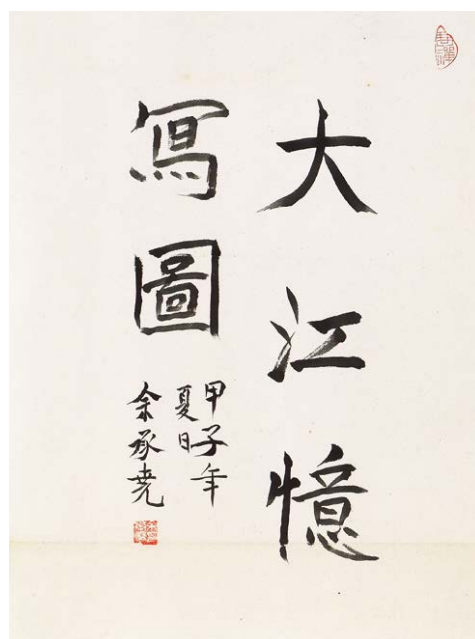 大江憶
寫圖
甲子年
夏日
余承堯